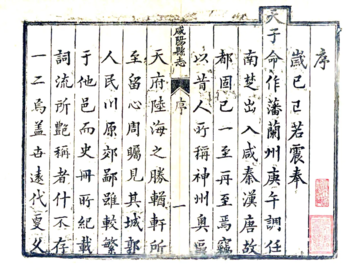 序
歲已巳若震奉
天子命作藩蘭州庚午調任
南楚出入咸秦漢唐故
都固已一至再至焉竊
以昔人所稱神州奧區
咸陽縣志
序
一
天府陸海之勝輶軒所
至留心周矚見其城郭
人民川原郊鄙雖較繁
于他邑而史冊所紀載
詞流所艷稱者什不存
一二焉蓋世遠代更父